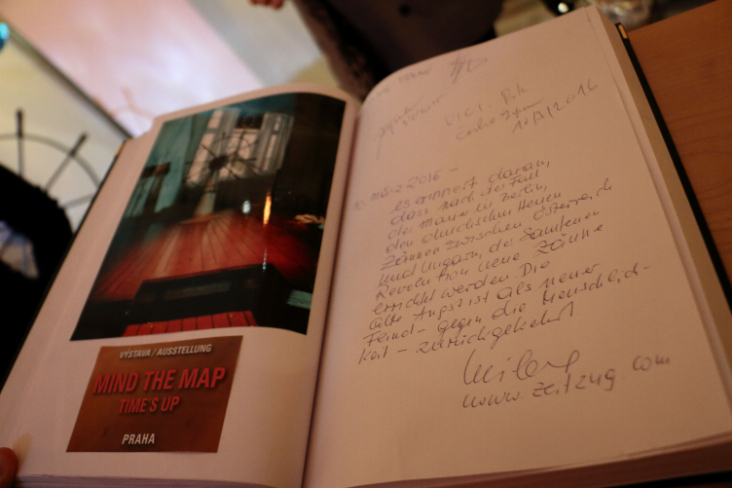 VÝSTAVA / AUSSTELLUNG
MIND THE MAP
TIME'S UP
PRAHA
10/3/2016
März 2016 -
es erinnert daran,
dass nach der Fall
der Mauer in Berlin,
den
Zäunen zwischen Österreich
und Ungarn, der Samtenen
Revolution neue Zäune
errichtet werden. Die
alte Angst ist als neuer
Feind - gegen die Menschlich-
keit - zurückgekehrt
www.zeitzug.com